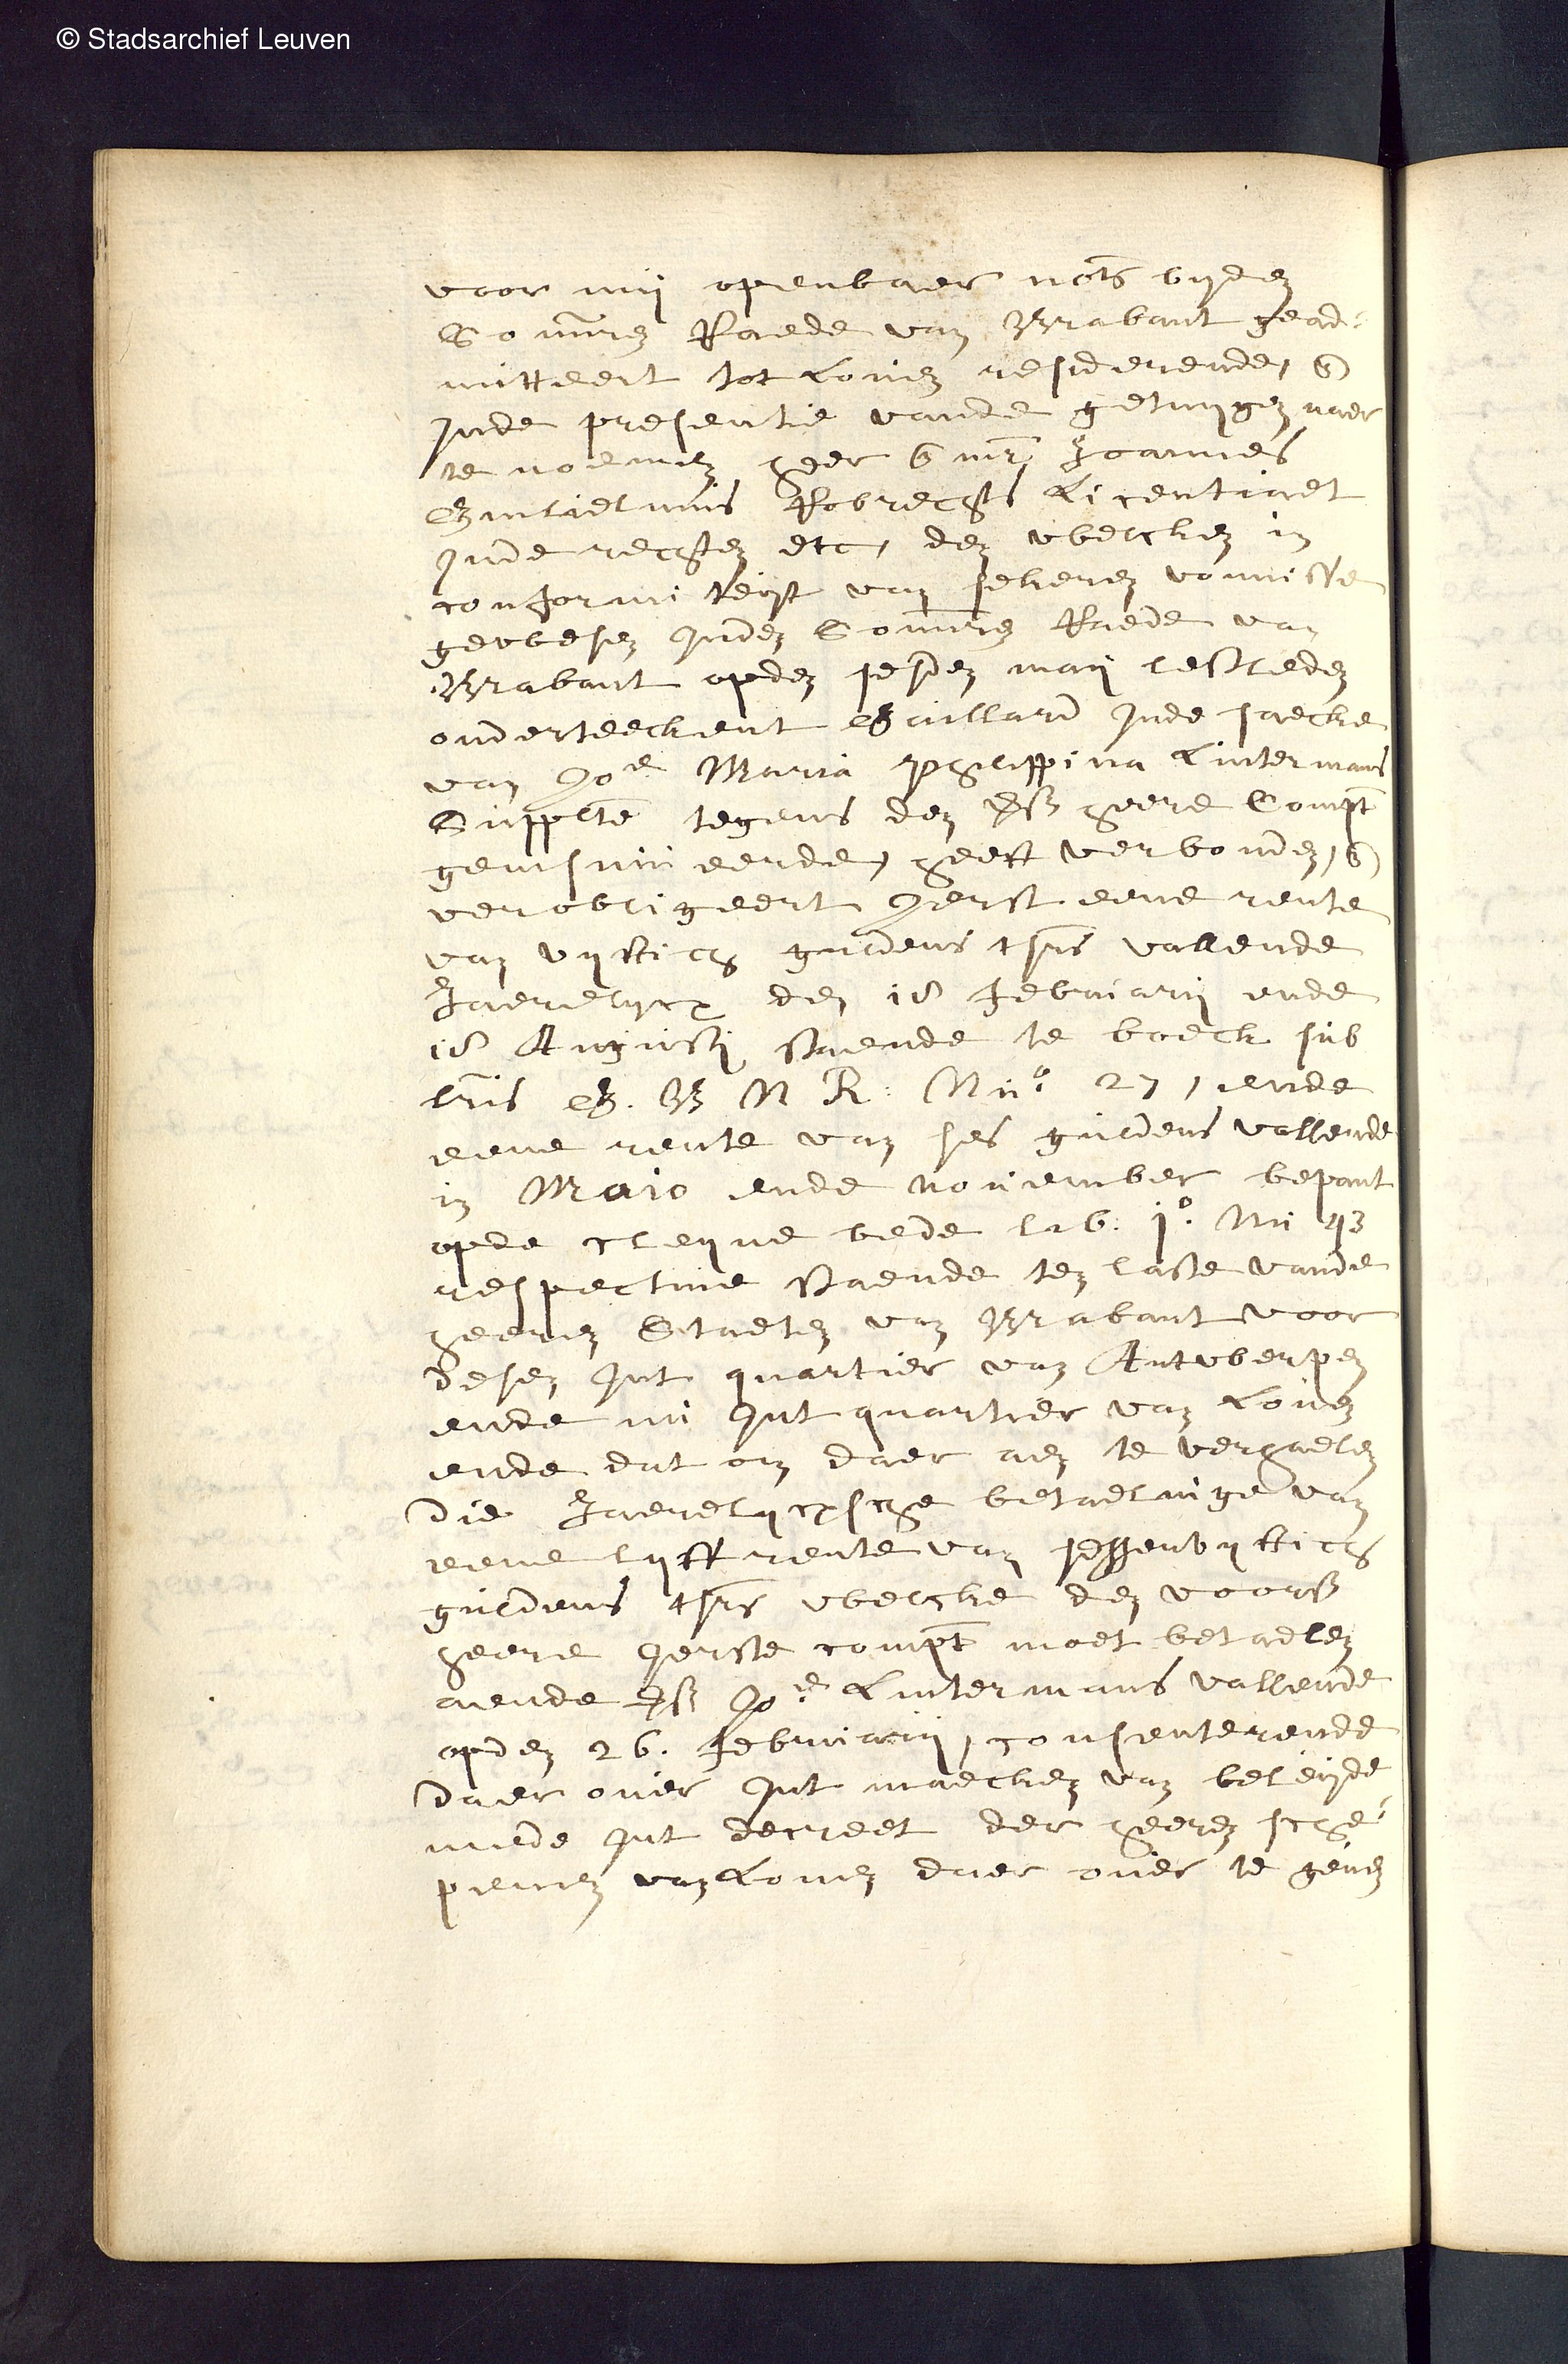 © Stadsarchief Leuven
voor mij openbaer nots byden
Souvrn Raede van Brabant gead-
mitteert tot Loven residerende, en
inde presentie vande getuygen naer
te noemen heer en mr Joannes
Guilielmus Robrechts Licentiaet
inde rechten etc, den welcken in
conformiteyt van sekeren vonnisse
gewesen inden Souvrn Raede van
Brabant opden sesden maij lestleden
onderteeckent Gaillard inde saecke
van Joe Maria Philippina Lintermans
Supplte tegens den vs heere Compt
geinsinueerde, heeft verbonden, en
verobligeert ierst eene rente
van vyftich guldens tsrs vallende
Jaerelycx den 18 februarij ende
18 Augusti staende te boeck sub
lris G. B N R: Nuo 27, ende
eene rente van ses guldens vallende
in Maio ende november bepant
opde cleyne bede lib: jo. Nu 43
respective staende ten laste vande
heeren Staeten van Brabant voor
desen int quartier van Antwerpen
ende nu int quartier van Loven
ende dat om daer aen te verhaelen
die Jaerelycxsche betaelinge van
eene lyffrente van sessenvyftich
guldens tsrs welcke den voors
heere ierste compt moet betaelen
aende vs Joe Lintermans vallende
opden 26. februarij, consenterende
daer over int maecken van beleyde
mede int decreet der heeren sche-
penen van Loven daer over te geven